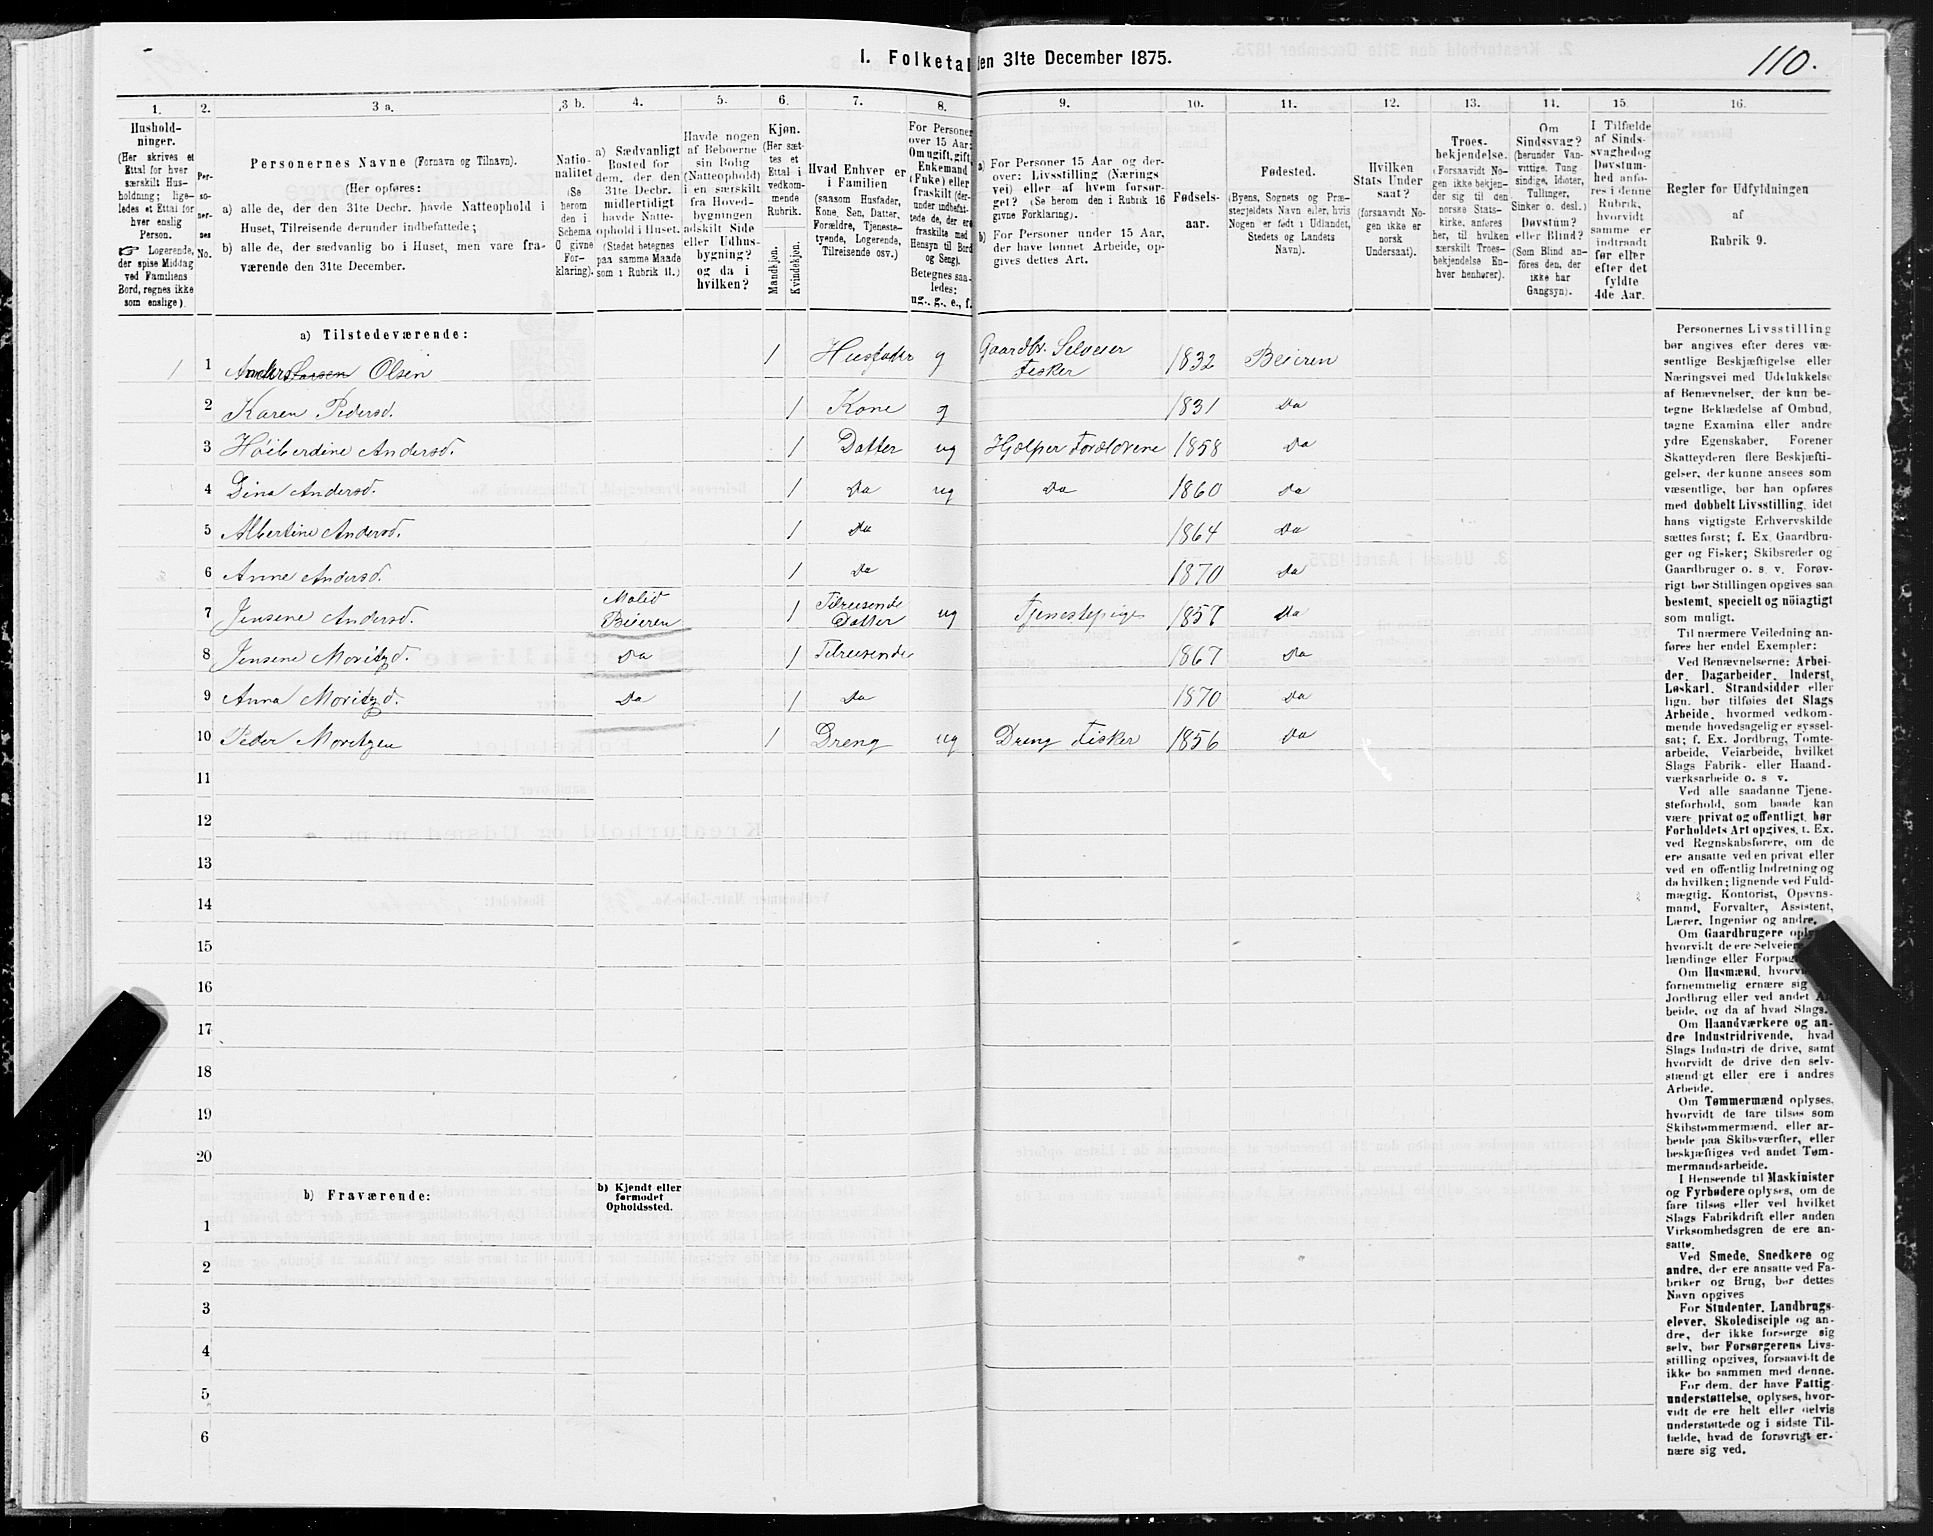 I. Folketal den 31te December 1875.
110.
1. 2. 3 a. 3 b. 4. 5. 6. 7. 8. 9. 10. 11. 12. 13. 14. 15. 16.
Hushold-
ninger.
(Her skrives et
Ettal for hver
særskilt Hus-
holdning; lige-
ledes et Ettal for
hver enslig
Person.
☞ Logerende,
der spise Middag
ved Familiens
Bord, regnes ikke
som enslige).
Per-
so-
ner-
nes
No.
Personernes Navne (Fornavn og Tilnavn).
(Her opføres:
a) alle de, der den 31te Decbr. havde Natteophold i
Huset, Tilreisende derunder indbefattede;
b) alle de, der sædvanlig bo i Huset, men vare fra-
værende den 31te December.
Natio-
nalitet
(Se
herom
den i
Schema
O givne
For-
klaring).
a) Sædvanligt
Bosted for
dem, der den
31te Decbr.
midlertidigt
havde Natte-
ophold i Huset.
(Stedet betegnes
paa samme Maade
som i Rubrik 11.)
Havde nogen
af Beboerne
sin Bolig
(Natteophold)
i en særskilt
fra Hoved-
bygningen
adskilt Side
eller Udhus-
bygning?
og da i
hvilken?
Kjøn.
(Her sæt-
tes et
Ettal i
vedkom-
mende
Rubrik.
Mandkjøn.
Kvindekjøn.
Hvad Enhver er
i Familien
(saasom Husfader,
Kone, Søn, Datter,
Forældre, Tjeneste-
tyende, Logerende,
Tilreisende osv.)
For Personer
over 15 Aar:
Om ugift, gift,
Enkemand
(Enke) eller
fraskilt (der-
under indbefat-
tede de, der ere
fraskilte med
Hensyn til Bord
og Seng).
Betegnes saa-
ledes:
ug., g., e., f.
a) For Personer 15 Aar og der-
over: Livsstilling (Nærings-
vei) eller af hvem forsør-
get? (Se herom den i Rubrik 16
givne Forklaring).
b) For Personer under 15 Aar,
der have lønnet Arbeide, op-
gives dettes Art.
Fødsels-
aar.
Fødested.
(Byens, Sognets og Præ-
stegjeldets Navn eller, hvis
Nogen er født i Udlandet,
Stedets og Landets
Navn).
Hvilken
Stats Under
saat?
(forsaavidt No-
gen ikke er
norsk
Undersaat).
Troes-
bekjendelse.
(Forsaavidt No-
gen ikke bekjen-
der sig til den
norske Stats-
kirke, anføres
her, til hvilken
særskilt Troes-
bekjendelse En-
hver henhører).
Om
Sindssvag?
(herunder Van-
vittige, Tung-
sindige, Idioter,
Tullinger,
Sinker o. desl.)
Døvstum?
eller Blind?
(Som Blind an-
føres den, der
ikke har
Gangsyn).
I Tilfælde
af Sinds-
svaghed og
Døvstum-
hed anfø-
res i denne
Rubrik,
hvorvidt
samme er
indtraadt
før eller
efter det
fyldte
4de Aar.
Regler for Udfyldningen
af
Rubrik 9.
a) Tilstedeværende:
1 1 Anders Larsen Olsen 1 Husfader g Gaardbr. Selveier Fisker 1832 Beieren
2 Karen Pedersd. 1 Kone g 1831 Da
3 Hóiberdine Andersd. 1 Datter ug Hjælper Forældrene 1858 Da
4 Dina Andersd. 1 Da ug Da 1860 Da
5 Albertine Andersd. 1 Da 1864 Da
6 Anne Andersd. 1 Da 1870 Da
7 Jensene Andersd. Beieren 1 Tilreisende Datter ug Tjenestepige 1857 Da
8 Jensene Moritzd. Da 1 Tilreisende 1867 Da
9 Anna Moritzd. Da 1 Da 1870 Da
10 Peder Moritzen 1 Dreng ug Dreng Fisker 1856 Da
11
12
13
14
15
16
17
18
19
20
b) Fraværende:
b) Kjendt eller
formodet
Opholdssted.
1
2
3
4
5
6
Personernes Livsstilling
bør angives efter deres væ-
sentlige Beskjæftigelse eller
Næringsvei med Udelukkelse
af Benævnelser, der kun be-
tegne Beklædelse af Ombud,
tagne Examina eller andre
ydre Egenskaber. Forener
Skatteyderen flere Beskjæfti-
gelser, der kunne ansees som
væsentlige, bør han opføres
med dobbelt Livsstilling, idet
hans vigtigste Erhvervskilde
sættes først; f. Ex. Gaardbru-
ger og Fisker; Skibsreder og
Gaardbruger o. s. v. Forøv-
rigt bør Stillingen opgives saa
bestemt, specielt og nöiagtigt
som muligt.
Til nærmere Veiledning an-
føres her endel Exempler:
Ved Benævnelserne: Arbei-
der, Dagarbeider, Inderst,
Løskarl, Strandsidder eller
lign. bør tilføies det Slags
Arbeide, hvormed vedkom-
mende hovedsagelig er syssel-
sat; f. Ex. Jordbrug, Tomte-
arbeide, Veiarbeide, hvilket
Slags Fabrik- eller Haand-
værksarbeide o. s. v.
Ved alle saadanne Tjene-
steforhold, som baade kan
være privat og offentligt, bør
Forholdets Art opgives, t. Ex.
ved Regnskabsførere, om de
ere ansatte ved en privat eller
ved en offentlig Indretning og
da hvilken; lignende ved Fuld-
mægtig, Kontorist, Opsyns-
mand, Forvalter, Assistent,
Lærer, Ingeniør og andre.
Om Gaardbrugere
hvorvidt de ere Selveiere,
lændinge eller
Om Husmænd,
fornemmelig ernære sig
Jordbrug eller ved andet
beide, og da af hvad Slags.
Om Haandværkere og an-
dre Industridrivende, hvad
Slags Industri de drive, samt
hvorvidt de drive den selv-
stændigt eller ere i andres
Arbeide.
Om Tømmermænd oplyses,
hvorvidt de fare tilsøs som
Skibstømmermænd, eller ar-
beide paa Skibsværfter, eller
beskjæftiges ved andet Tøm-
mermandsarbeide.
I Henseende til Maskinister
og Fyrbødere oplyses, om de
fare tilsøs eller ved hvilket
Slags Fabrikdrift eller anden
Virksomhedsgren de ere an-
satte.
Ved Smede, Snedkere og
andre, der ere ansatte ved Fa-
briker og Brug, bør dettes
Navn opgives
For Studenter, Landbrugs-
elever, Skoledisciple og an-
dre, der ikke forsørge sig
selv, bør Forsørgerens Livs-
stilling opgives, forsaavidt de
ikke bo sammen med denne.
For dem, der have Fattig-
understøttelse, oplyses, hvor-
vidt de ere helt eller delvis
understøttede og i sidste Til-
fælde, hvad de forøvrigt er-
nære sig ved.